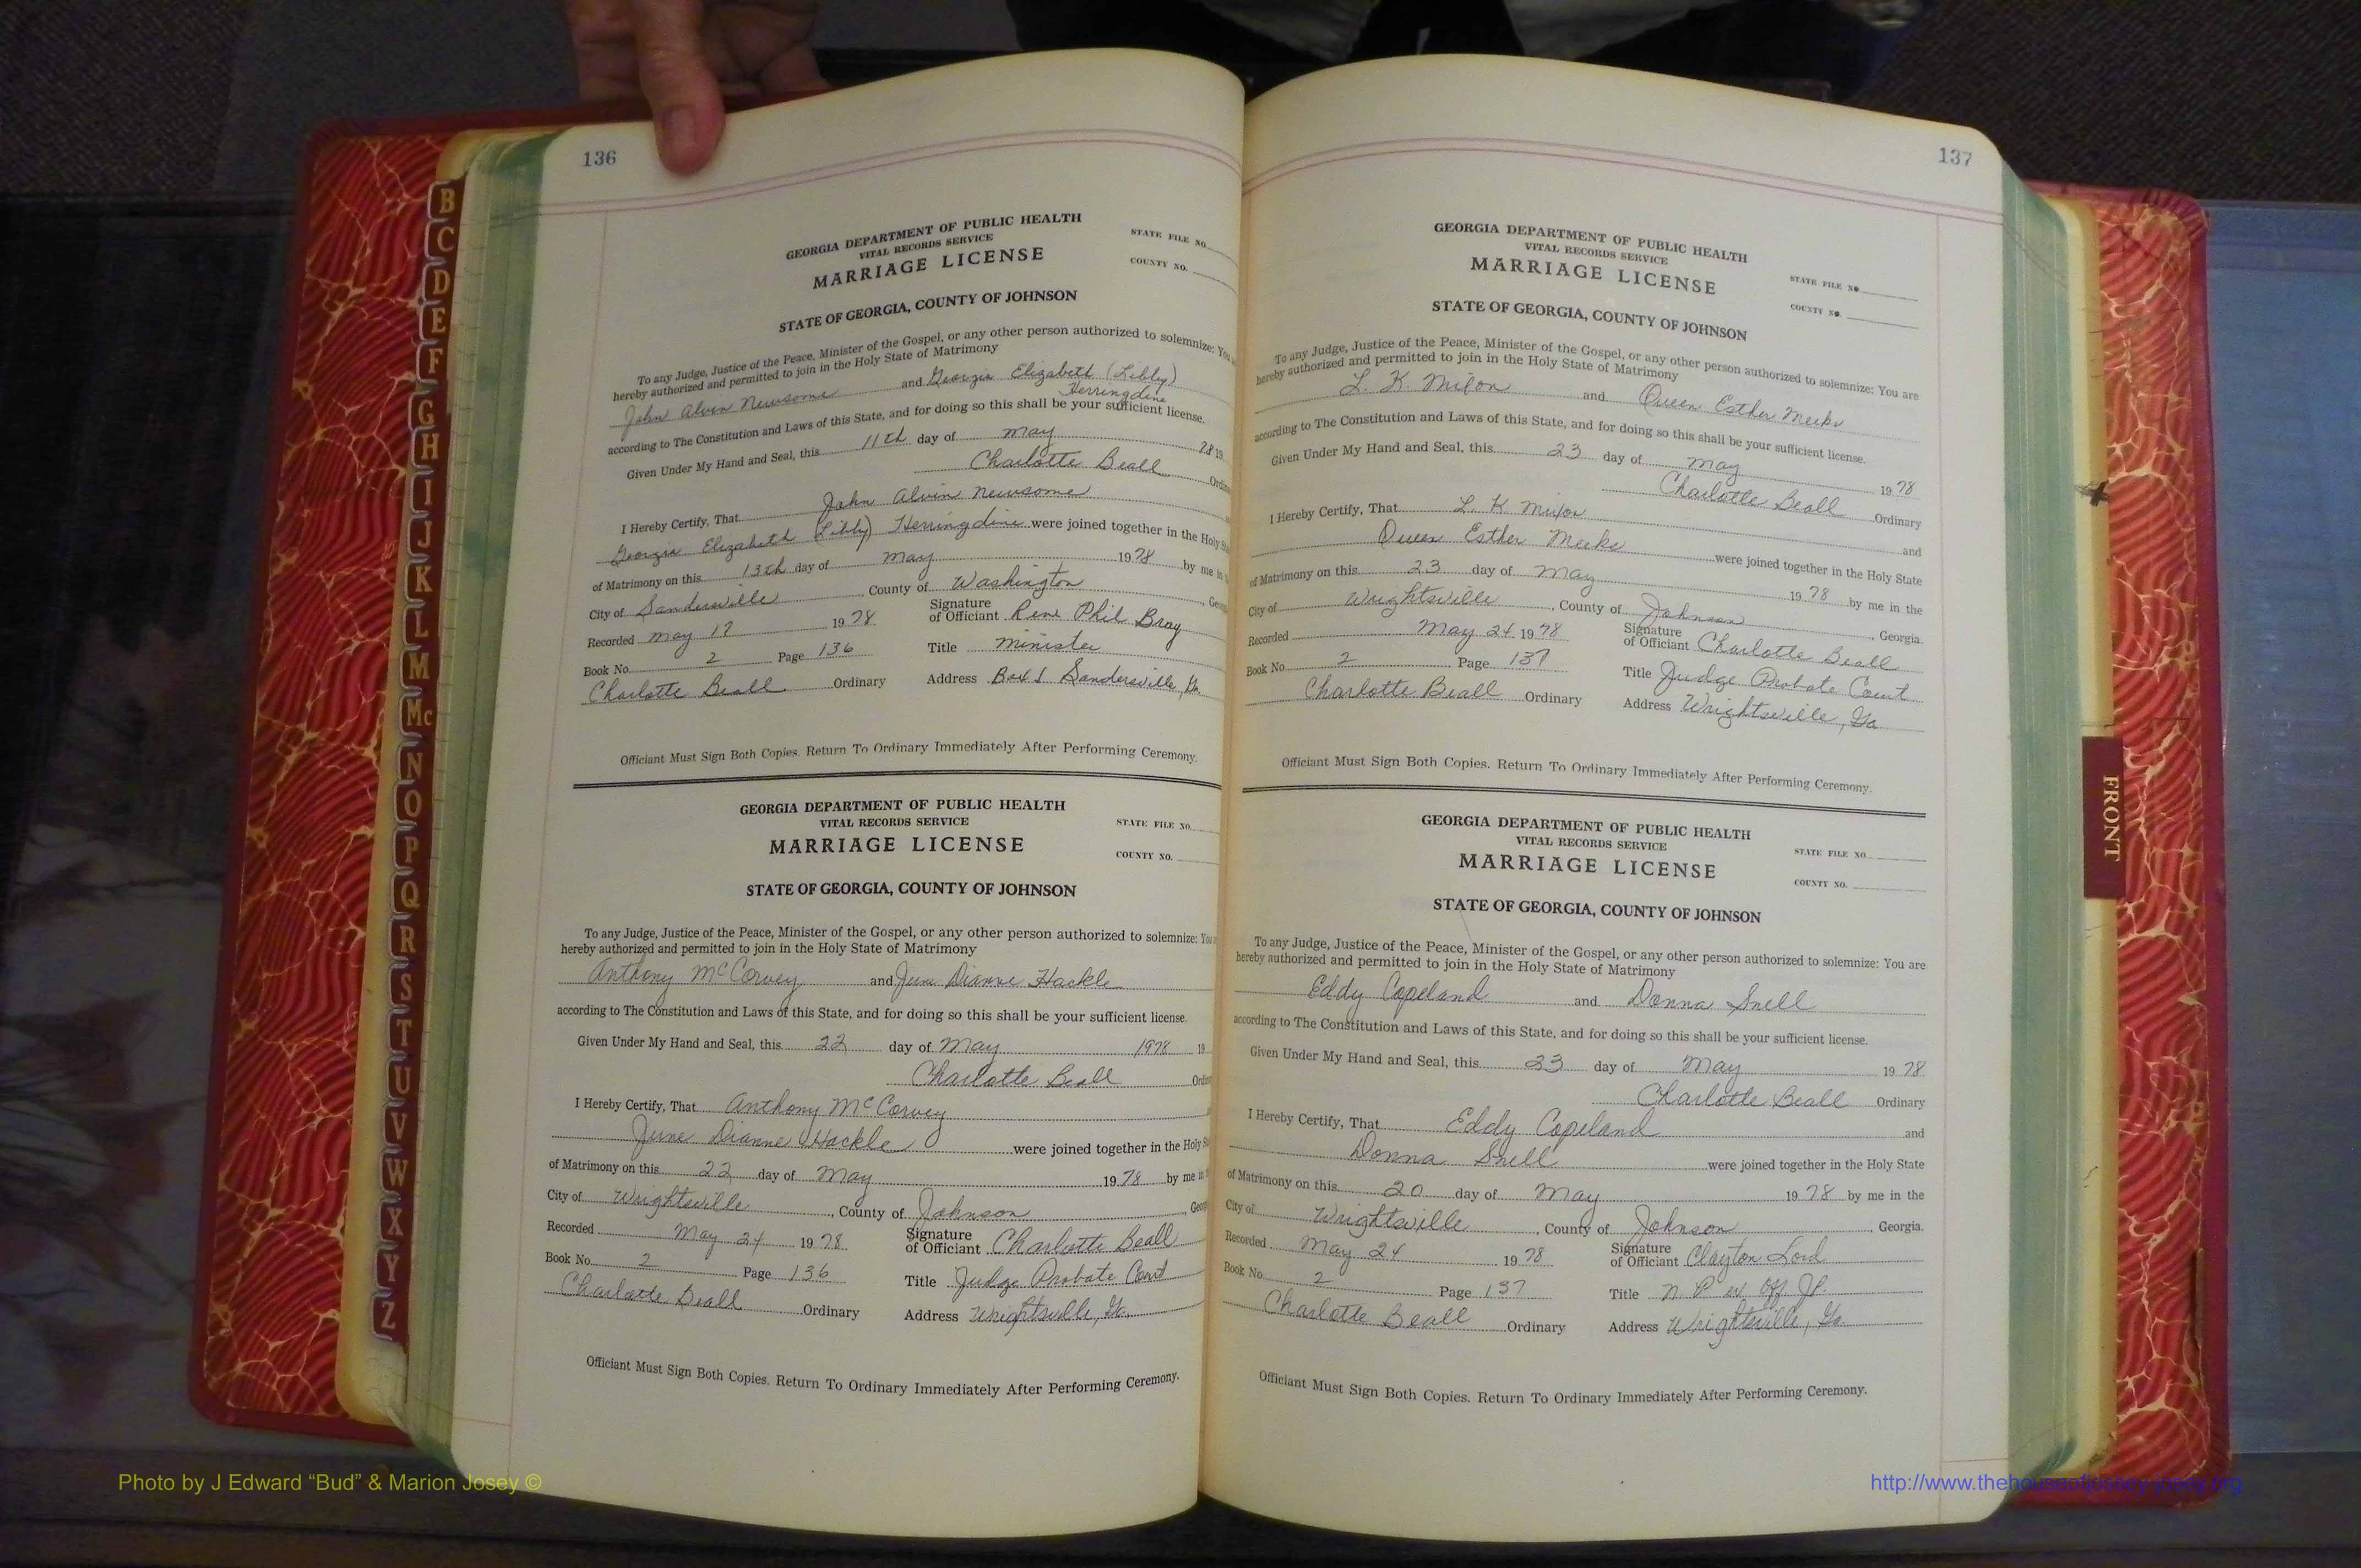 136
GEORGIA DEPARTMENT OF PUBLIC HEALTH
VITAL RECORDS SERVICE
MARRIAGE LICENSE
STATE FILE NO.
COUNTY NO.
STATE OF GEORGIA, COUNTY OF JOHNSON
To any Judge, Justice of the Peace, Minister of the Gospel, or any other person authorized to solemnize: You
hereby authorized and permitted to join in the Holy State of Matrimony
John Alvin Newsome and Georgia Elizabeth (Libby)
Herringdine
according to The Constitution and Laws of this State, and for doing so this shall be your sufficient license.
Given Under My Hand and Seal, this 11th day of May 78 19
Charlotte Beall Ordin
I Hereby Certify, That John Alvin Newsome
Georgia Elizabeth (Libby) Herringdine were joined together in the Holy S
of Matrimony on this 13th day of May 1978 by me in
City of Sandersville, County of Washington, Geor
Recorded May 17 1978 Signature of Officiant Rene Phil Bray
Book No. 2 Page 136 Title Minister
Charlotte Beall Ordinary Address Box 1 Sandersville, Ga.
Officiant Must Sign Both Copies. Return To Ordinary Immediately After Performing Ceremony.
GEORGIA DEPARTMENT OF PUBLIC HEALTH
VITAL RECORDS SERVICE
MARRIAGE LICENSE
STATE FILE NO.
COUNTY NO.
STATE OF GEORGIA, COUNTY OF JOHNSON
To any Judge, Justice of the Peace, Minister of the Gospel, or any other person authorized to solemnize: You
hereby authorized and permitted to join in the Holy State of Matrimony
Anthony McCorvey and June Dianne Hackle
according to The Constitution and Laws of this State, and for doing so this shall be your sufficient license.
Given Under My Hand and Seal, this 22 day of May 1978 19
Charlotte Beall Ordin
I Hereby Certify, That Anthony McCorvey
June Dianne Hackle were joined together in the Holy S
of Matrimony on this 22 day of May 1978 by me in
City of Wrightsville, County of Johnson, Geor
Recorded May 24 1978 Signature of Officiant Charlotte Beall
Book No. 2 Page 136 Title Judge Probate Court
Charlotte Beall Ordinary Address Wrightsville, Ga.
Officiant Must Sign Both Copies. Return To Ordinary Immediately After Performing Ceremony.
137
GEORGIA DEPARTMENT OF PUBLIC HEALTH
VITAL RECORDS SERVICE
MARRIAGE LICENSE
STATE FILE NO.
COUNTY NO.
STATE OF GEORGIA, COUNTY OF JOHNSON
To any Judge, Justice of the Peace, Minister of the Gospel, or any other person authorized to solemnize: You are
hereby authorized and permitted to join in the Holy State of Matrimony
L. K. Mixon and Queen Esther Meeks
according to The Constitution and Laws of this State, and for doing so this shall be your sufficient license.
Given Under My Hand and Seal, this 23 day of May 1978
Charlotte Beall Ordinary
I Hereby Certify, That L. K Mixon and
Queen Esther Meeks were joined together in the Holy State
of Matrimony on this 23 day of May 1978 by me in the
City of Wrightsville, County of Johnson, Georgia.
Recorded May 24 1978 Signature of Officiant Charlotte Beall
Book No. 2 Page 137 Title Judge Probate Court
Charlotte Beall Ordinary Address Wrightsville, Ga
Officiant Must Sign Both Copies. Return To Ordinary Immediately After Performing Ceremony.
GEORGIA DEPARTMENT OF PUBLIC HEALTH
VITAL RECORDS SERVICE
MARRIAGE LICENSE
STATE FILE NO.
COUNTY NO.
STATE OF GEORGIA, COUNTY OF JOHNSON
To any Judge, Justice of the Peace, Minister of the Gospel, or any other person authorized to solemnize: You are
hereby authorized and permitted to join in the Holy State of Matrimony
Eddy Copeland and Donna Snell
according to The Constitution and Laws of this State, and for doing so this shall be your sufficient license.
Given Under My Hand and Seal, this 23 day of May 1978
Charlotte Beall Ordinary
I Hereby Certify, That Eddy Copeland and
Donna Snell were joined together in the Holy State
of Matrimony on this 20 day of May 1978 by me in the
City of Wrightsville, County of Johnson, Georgia.
Recorded May 24 1978 Signature of Officiant Clayton Lord
Book No. 2 Page 137 Title N. P ex off. JP.
Charlotte Beall Ordinary Address Wrightsville, Ga.
Officiant Must Sign Both Copies. Return To Ordinary Immediately After Performing Ceremony.
B
C
D
E
F
G
H
I
J
K
L
M
Mc
N
O
P
Q
R
S
T
U
V
W
X
Y
Z
FRONT
Photo by J Edward “Bud” & Marion Josey ©
http://www.thehouseofjossey-josey.org